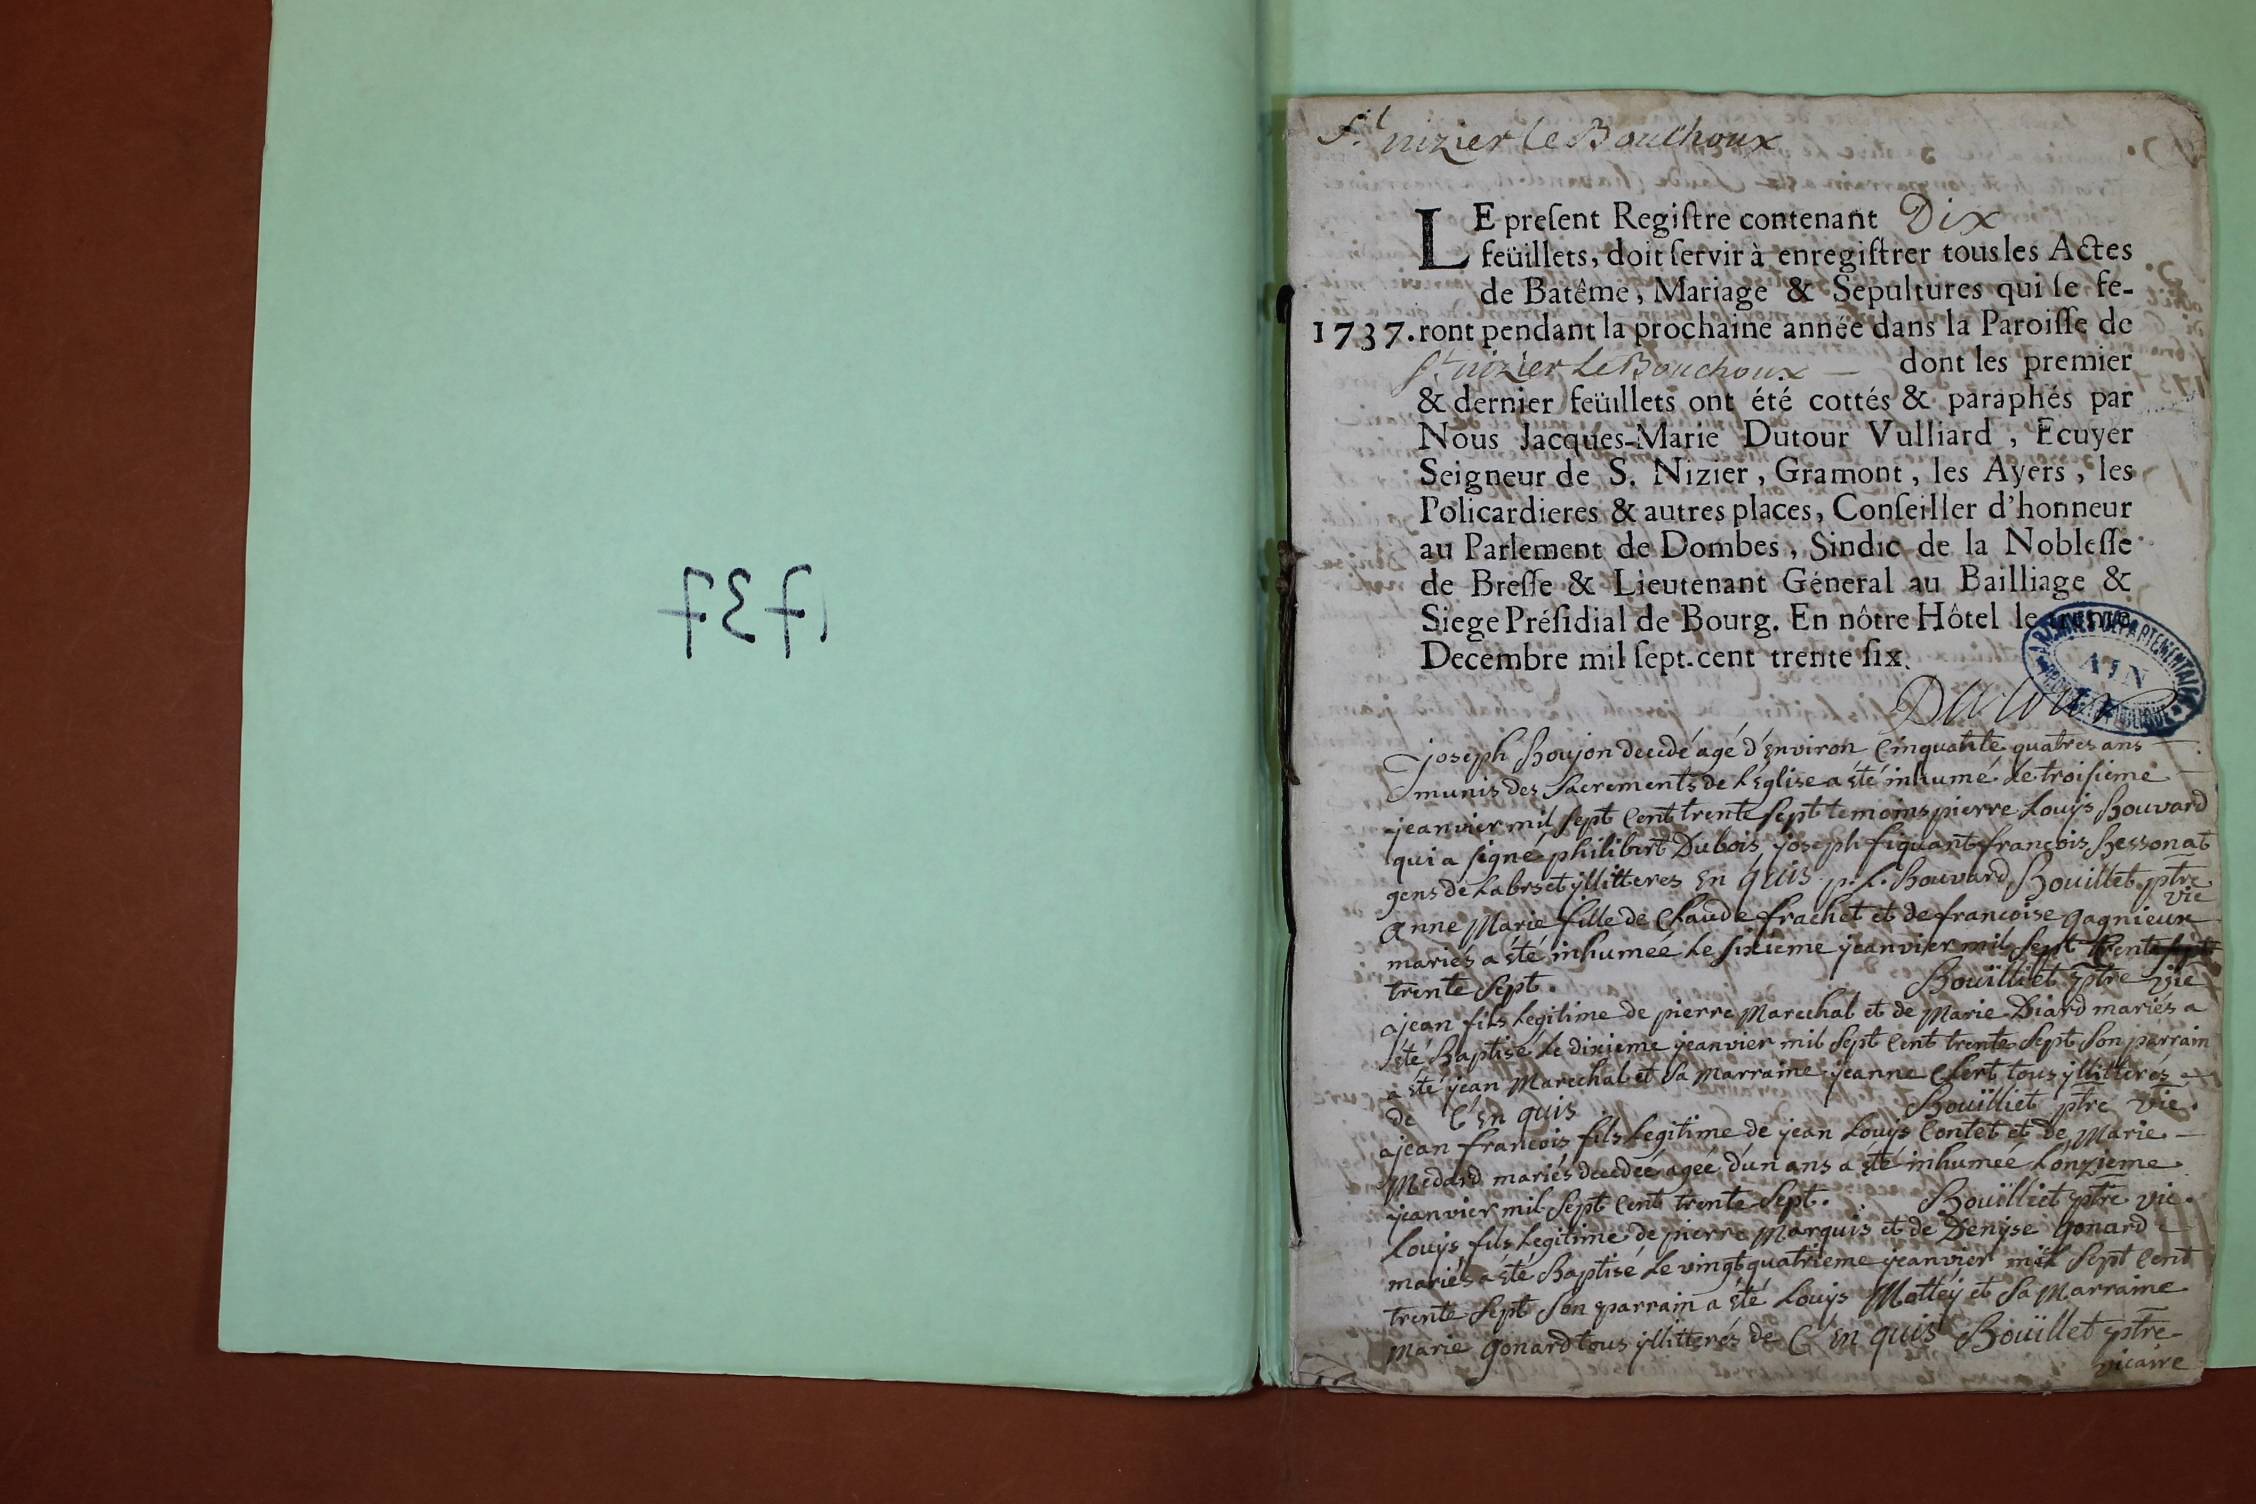 1737
St nizier le Bouchoux
LE preſent Regiſtre contenant Dix
feüillets, doit ſervir à enregiſtrer tous les Actes
de Batême, Mariage & Sepultures qui ſe fe-
1737. ront pendant la prochaine année dans la Paroiſſe de
St nizier Le Bouchoux — dont les premier
& dernier feüillets ont été cottés & paraphés par
Nous Jacques-Marie Dutour Vulliard, Ecuyer
Seigneur de S. Nizier, Gramont, les Ayers, les
Policardieres & autres places, Conſeiller d'honneur
au Parlement de Dombes, Sindic de la Nobleſſe
de Breſſe & Lieutenant Géneral au Bailliage &
Siege Préſidial de Bourg. En nôtre Hôtel le trente
Decembre mil ſept-cent trente ſix.
ARCHIVES DEPARTEMENTALES
AIN
Dutour
joseph Boujon decedé agé d'Environ Cinquante quatres ans
munis des Sacrements de L'Eglise a èté inhumé le troisieme
jeanvier mil sept Cent trente sept temoins pierre Louÿs Bouvard
qui a signé philibert Dubois joseph fiquant françois Bessonat
gens de Labr et ÿllitteres En quis p. L. Bouvard Bouillet ptre
vic
Anne Marie fille de Claude frachet et de francoise gagnieur
mariés a èté inhumeé Le sixieme jeanvier mil sept
trente sept. Bouïlliet ptre vic
jean fils Legitime de pierre Marechal et de Marie Diard mariés a
èté Baptisé le dixieme jeanvier mil sept Cent trente sept son parrain
a èté jean Marechal et sa marraine jeanne Clert tous ÿllitterés
de C En quis Bouïlliet ptre vic.
jean francois fils Legitime de jean Louÿs Contet et de Marie
Medard mariés decedeé ageé d'un ans a èté inhumeé L'onzieme
jeanvier mil sept Cent trente sept. Bouïlliet ptre vic.
Louÿs fils Legitime de pierre Marquis et de Denÿse gonard
mariés a èté Baptisé Le vingt quatrieme jeanvier mil sept Cent
trente sept son parrain a èté Louÿs Mottéÿ et sa Marraine
marie gonard tous ÿllitterés de C En quis Bouïllet ptre
vicaire